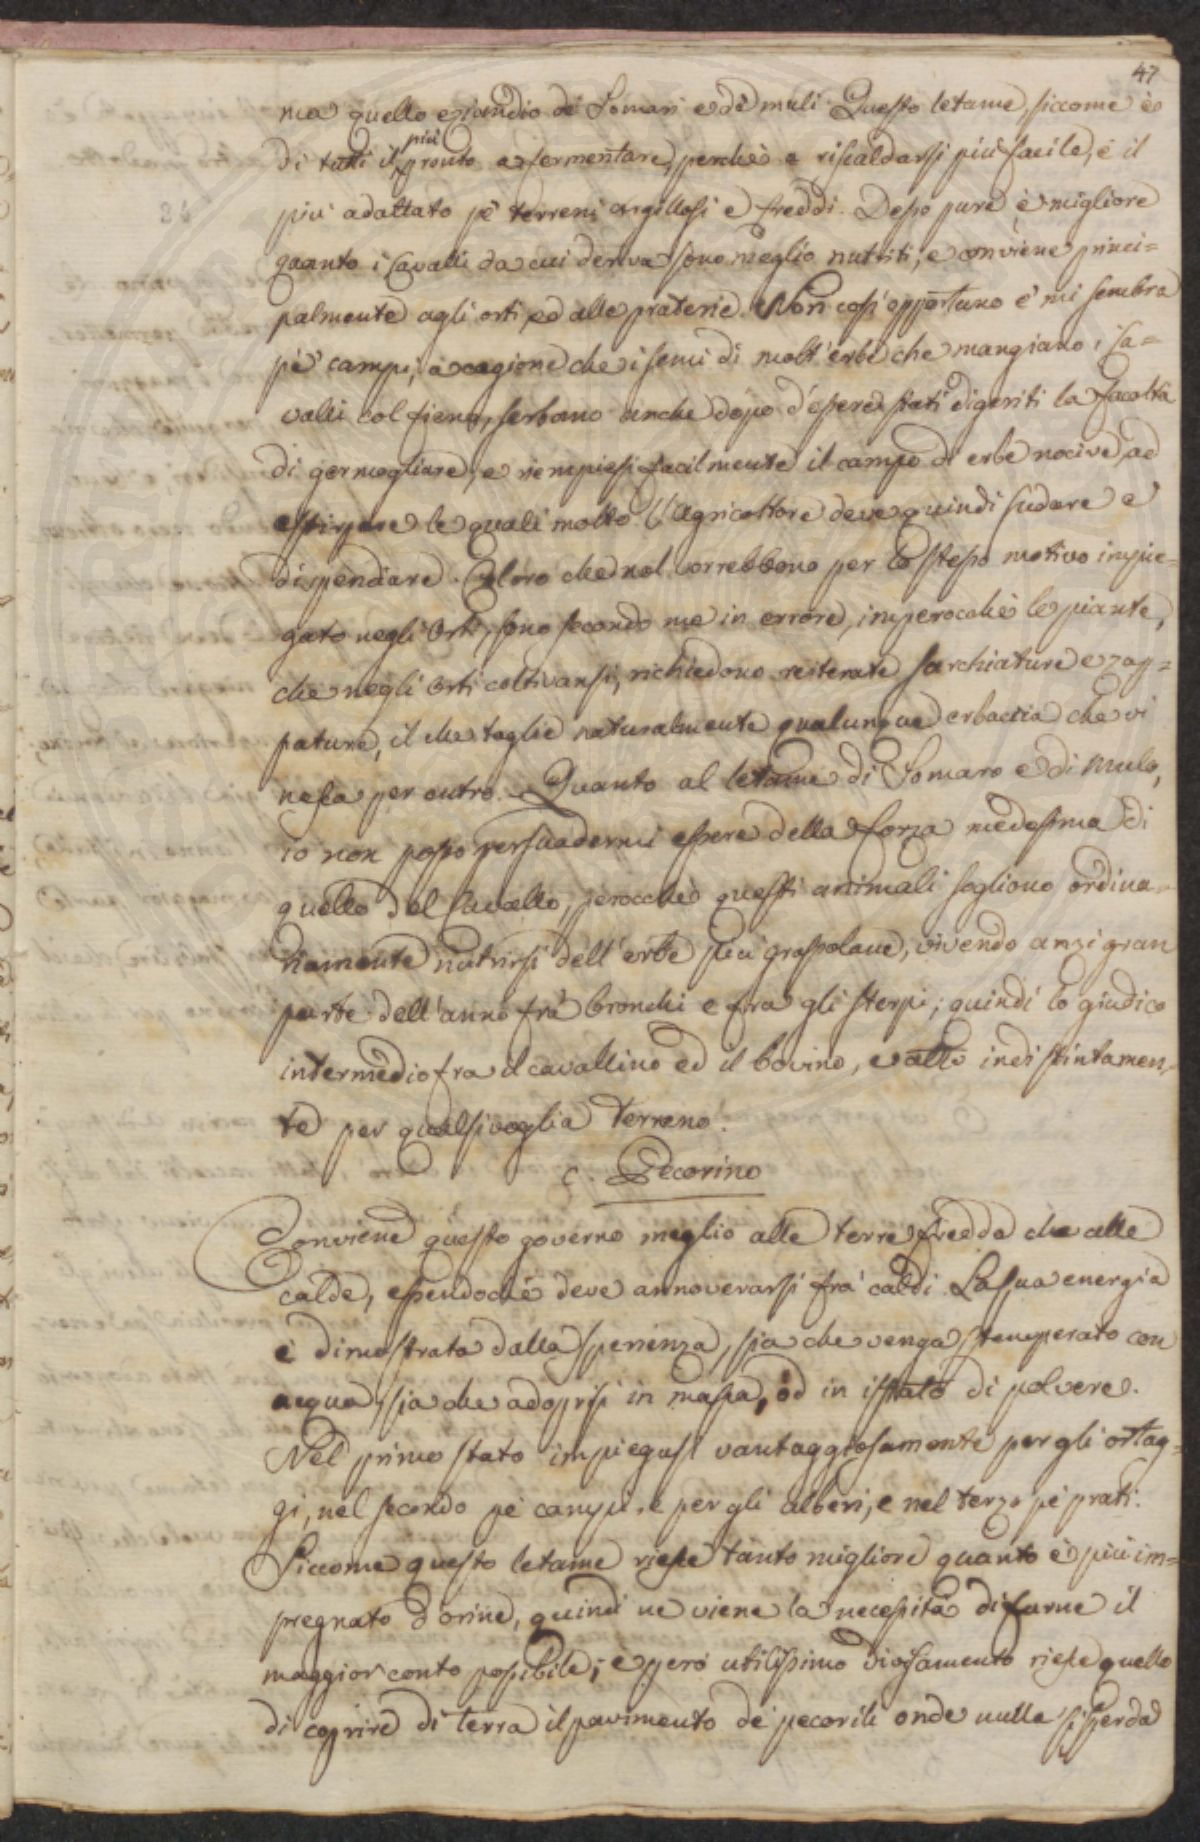 47
ma quello eziandio de' Somari e di muli. Questo letame, siccome è
di tutti il più pronto a fermentare, perchè a riscaldarsi più facile, è il
più adattato pe' terreni argillosi e freddi. Desso pure è migliore
quanto i Cavalli da cui deriva sono meglio nutriti; e conviene princi=
palmente agli orti, ed alle praterie. Non così opportuno e' mi sembra
pe' campi, a cagione che i semi di molt'erbe che mangiano i Ca=
valli col fieno, serbano anche dopo d'essere stati digeriti la facoltà
di germogliare, e riempiesi facilmente il campo di erbe nocive, ad
estirpare le quali molto l'agricoltore deve quindi sudare e
dispendiare. Coloro che nol vorrebbono per lo stesso motivo impie=
gato negli Orti, sono secondo me in errore, imperocchè le piante,
che negli Orti coltivansi, richiedono reiterate sarchiature e zap=
pature, il che toglie naturalmente qualunque erbaccia che vi
nasca per entro. Quanto al letame di Somaro e di Mulo,
io non posso persuadermi essere della forza medesima di
quello del Cavallo, perocchè questi animali sogliono ordina=
riamente nutrirsi dell'erbe più grossolane, vivendo anzi gran
parte dell'anno fra' bronchi e fra gli sterpi; quindi lo giudico
intermedio fra il cavallino ed il bovino, e atto indistintamen=
te per qualsivoglia terreno.
c. Pecorino
Conviene questo governo meglio alle terre fredde che alle
calde, essendochè deve annoverarsi fra' caldi. La sua energia
è dimostrata dalla sperienza, sia che venga stemperato con
acqua, sia che adoprisi in massa, od in istato di polvere.
Nel primo stato impiegasi vantaggiosamente per gli ortag=
gi, nel secondo pe' campi, e per gli alberi, e nel terzo pe' prati.
Siccome questo letame riesce tanto migliore quanto è più im=
pregnato d'orine, quindi ne viene la necessità di farne il
maggior conto possibile; e però utilissimo riesce quello
di coprire di terra il pavimento de' pecorili onde nulla si sperda